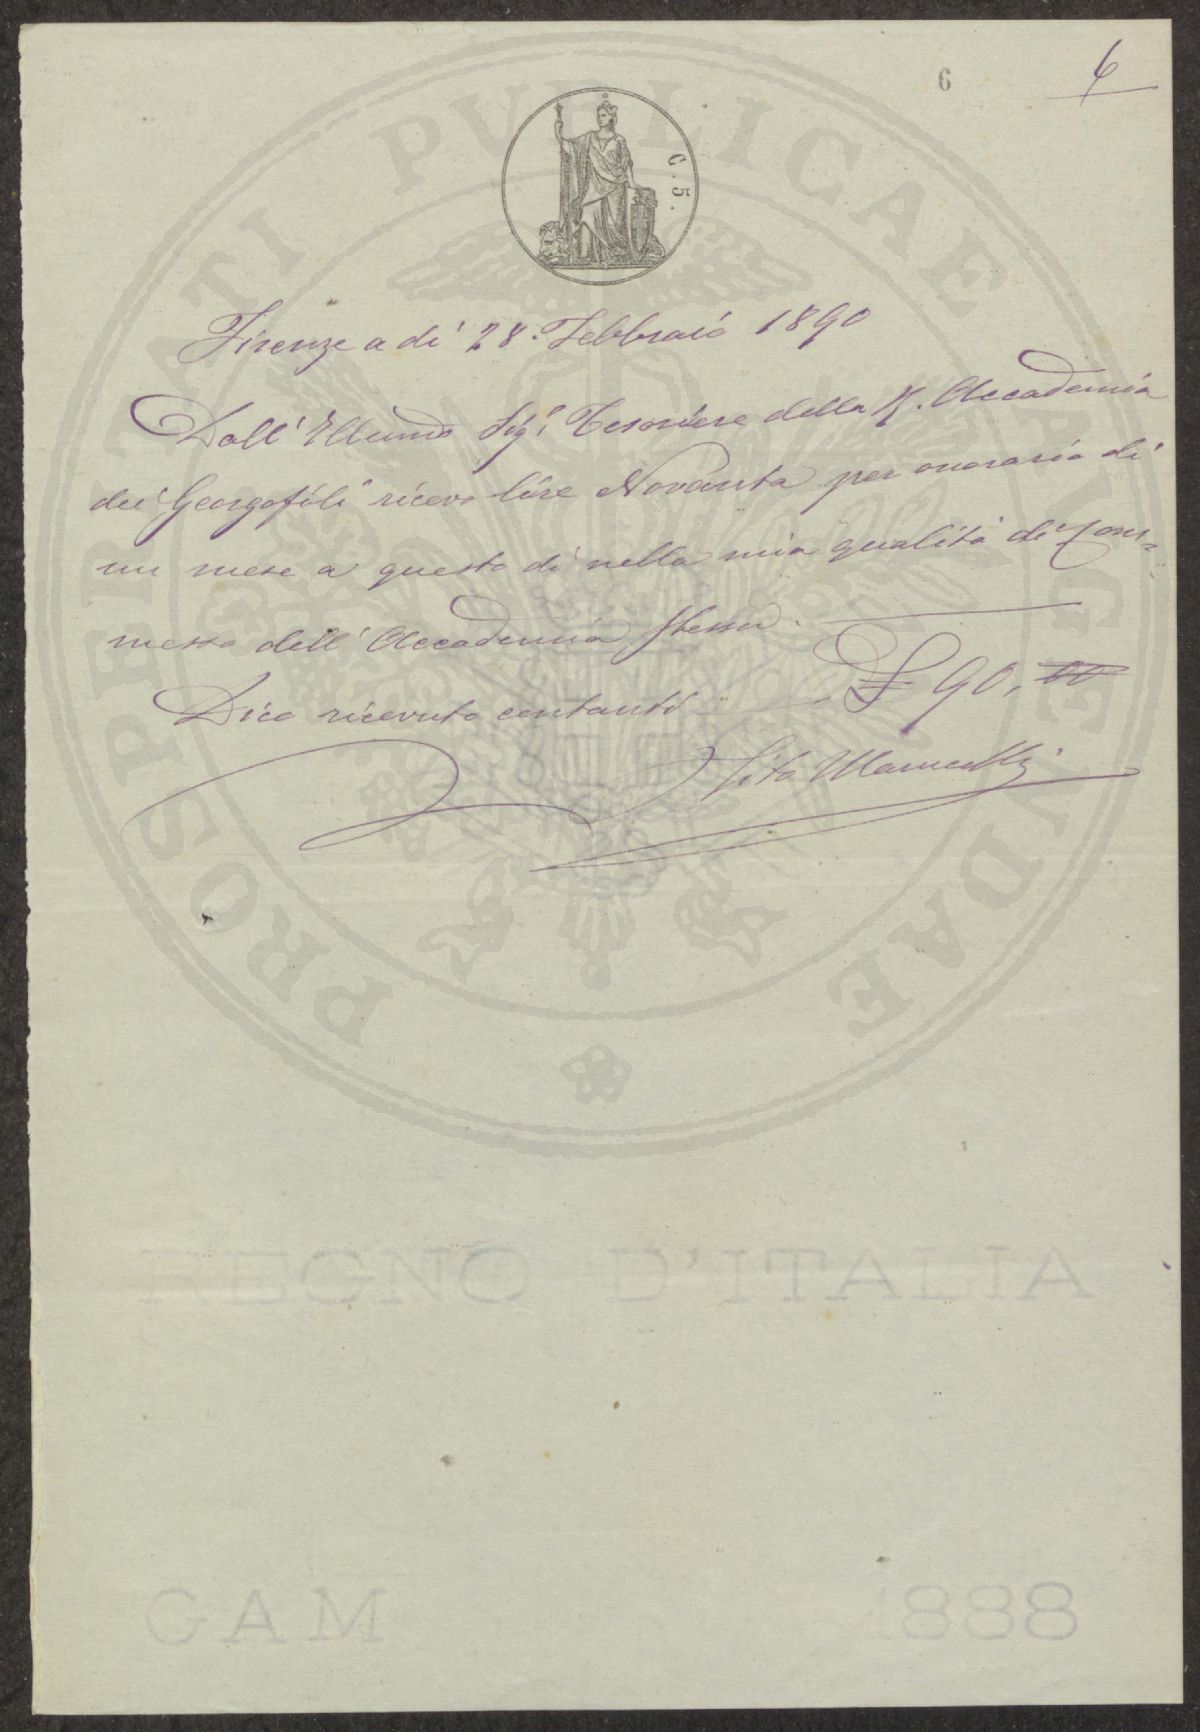 6
6
C. 5.
PROSPERITATI PUBLICAE AUGENDAE
Firenze a dì 28. Febbraio 1890
Dall' Illmo Sigr Tesoriere della R. Accademia
dei Georgofili ricevo lire Novanta per onorario di
un mese a questo dì nella mia qualità di Com=
messo dell' Accademia stessa.
Dico ricevuto contanti £ 90, 00
Tito
REGNO D'ITALIA
GAM 1888